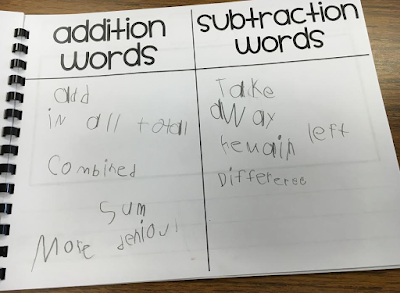 addition
words
add
in all total
Combined
Sum
More
subtraction
words
Take
away
remain left
Differerce